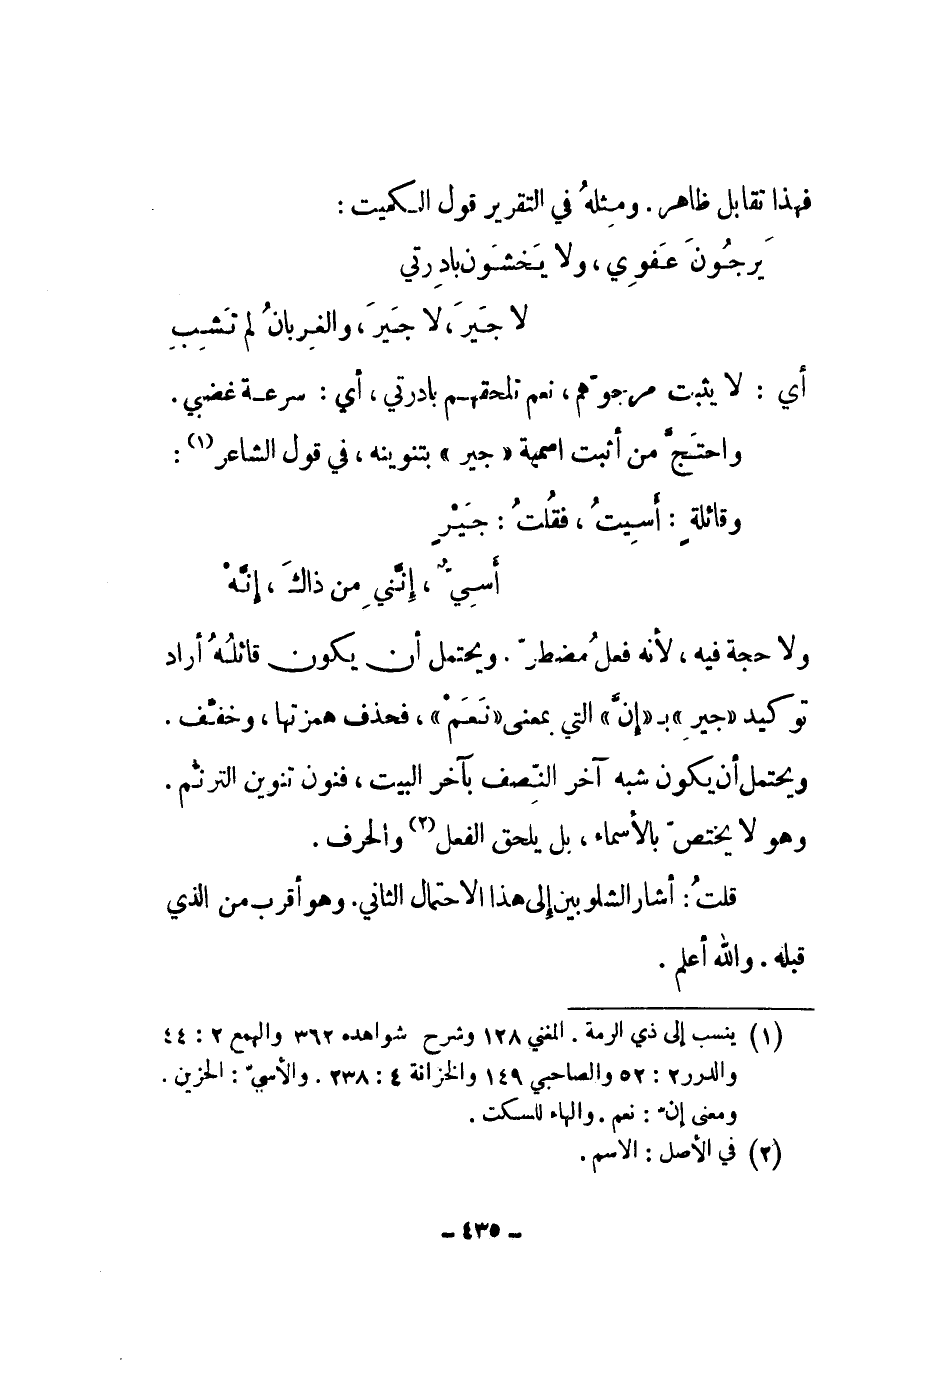 فهذا تقابل ظاهر . ومِثلهُ في التقرير قول الكميت :
يَرجُونَ عَفوِي ، ولا يَخشَون بادِرتي
لا جَيرَ ، لا جَيرَ ، والغِربانُ لم تَشِبِ
أي : لا يثبت مرجوّهم ، نعم تلحقهم بادرتي ، أي : سرعة غضبي .
واحتَجَّ من أثبت اسمية « جير » بتنوينه ، في قول الشاعر (١) :
وقائلةٍ : أَسِيتُ ، فقُلتُ : جَيْرٍ
أَسِيٌّ ، إِنَّني مِن ذاكَ ، إِنَّهْ
ولا حجة فيه ، لأنه فعلُ مُضطرّ . ويحتمل أن يكون قائلُهُ أراد
توكيد «جيرِ» بـ«إنَّ» التي بمعنى «نَعَمْ» ، فحذف همزتها ، وخفّف .
ويحتمل أن يكون شبه آخر النّصف بآخر البيت ، فنون تنوين الترنّم .
وهو لا يختصّ بالأسماء ، بل يلحق الفعل (٢) والحرف .
قلتُ : أشار الشلوبين إلى هذا الاحتمال الثاني . وهو أقرب من الذي
قبله . والله أعلم .
(١) ينسب إلى ذي الرمة . المغني ١٢٨ وشرح شواهده ٣٦٢ والهمع ٢ : ٤٤
والدرر ٢ : ٥٢ والصاحبي ١٤٩ والخزانة ٤ : ٢٣٨ . والأسيّ : الحزين .
ومعنى إنّ : نعم . والهاء للسكت .
(٢) في الأصل : الاسم .
– ٤٣٥ –